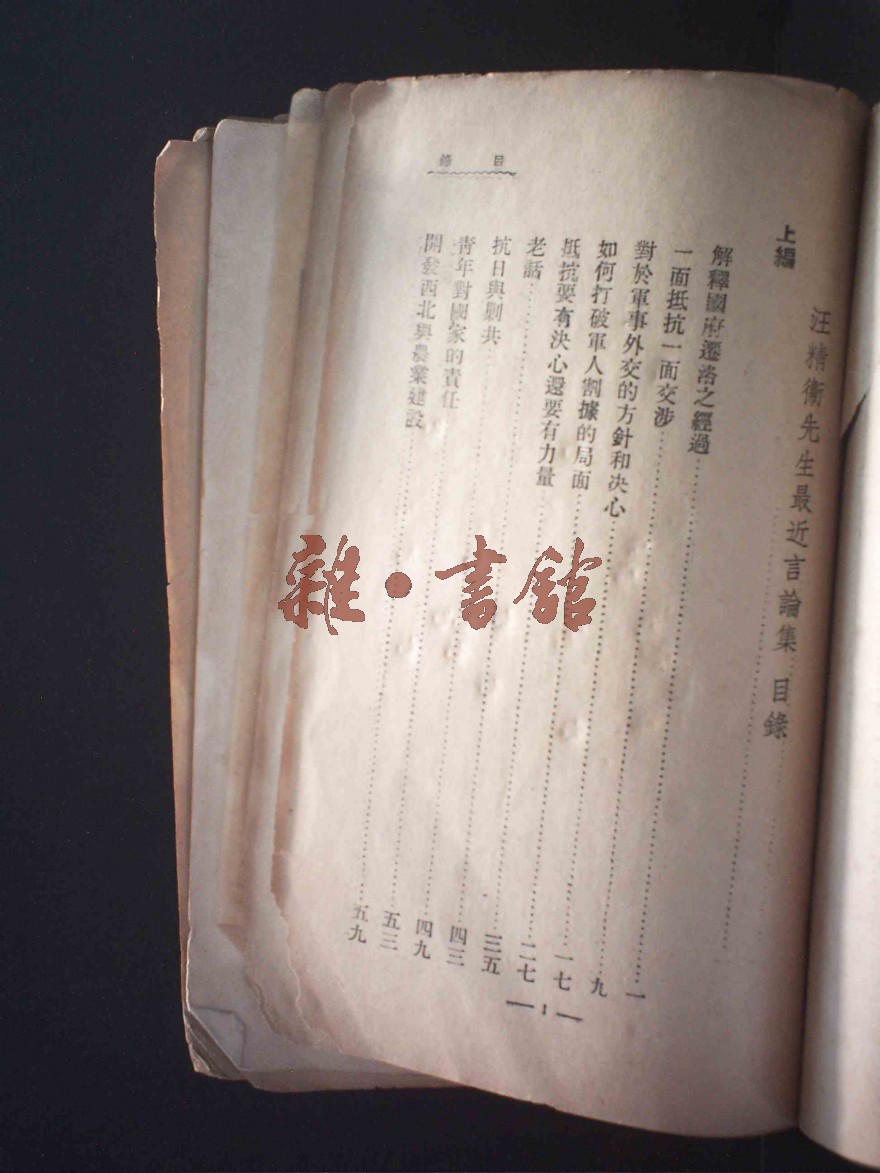 目錄
汪精衛先生最近言論集 目錄
上編
解釋國府遷洛之經過……一
一面抵抗一面交涉……九
對於軍事外交的方針和决心……一七
如何打破軍人割據的局面……二七
抵抗要有决心還要有力量……三五
老話……四三
抗日與剿共……四九
青年對國家的責任……五三
開發西北與農業建設……五九
— 1 —
雜·書館